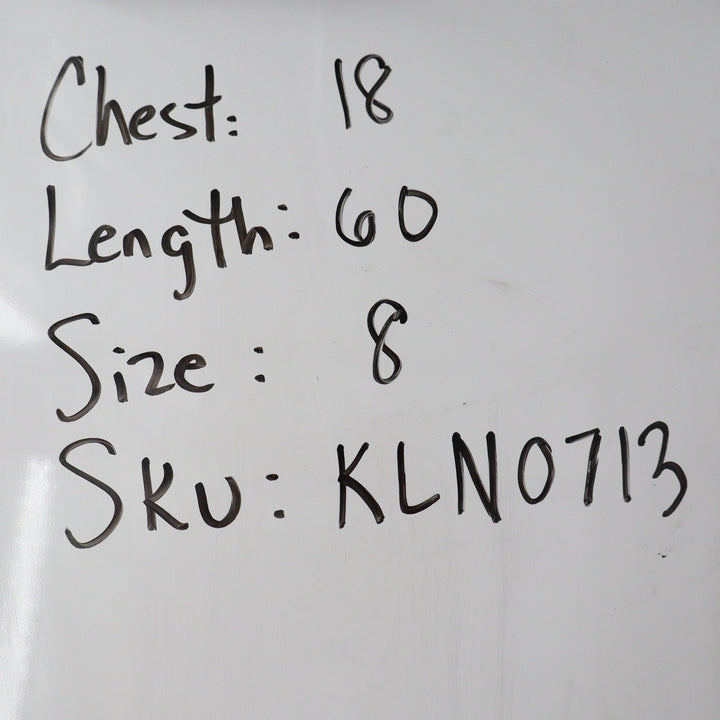 Chest: 18
Length: 60
Size: 8
SKU: KLN0713